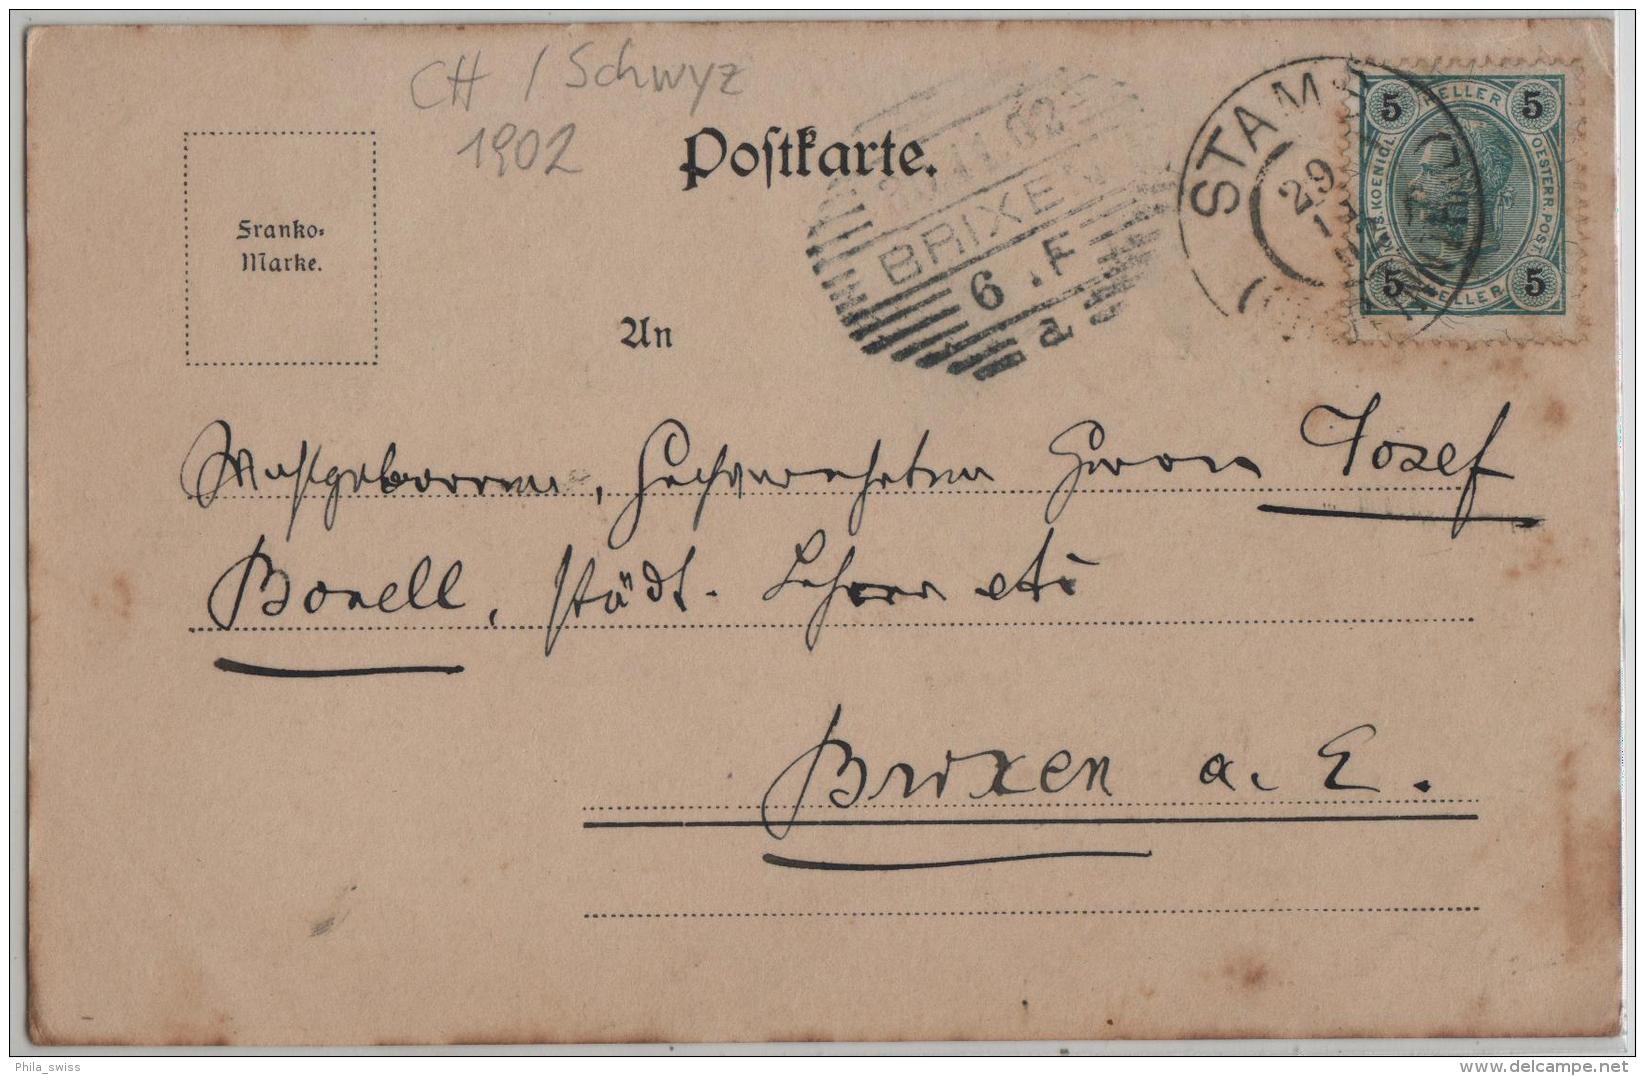 CH / Schwyz
1902
Postkarte.
Franko-
Marke.
11.02
BRIXEN
6.F
a
STAMS
29
5 HELLER 5
KAIS. KOENIGL. OESTERR. POST.
5 HELLER 5
An
Wohlgeborenen, Hochverehrten Herrn Josef
Bonell, städt. Lehrer etc
Brixen a. E.
Phila_swiss
delcampe.net